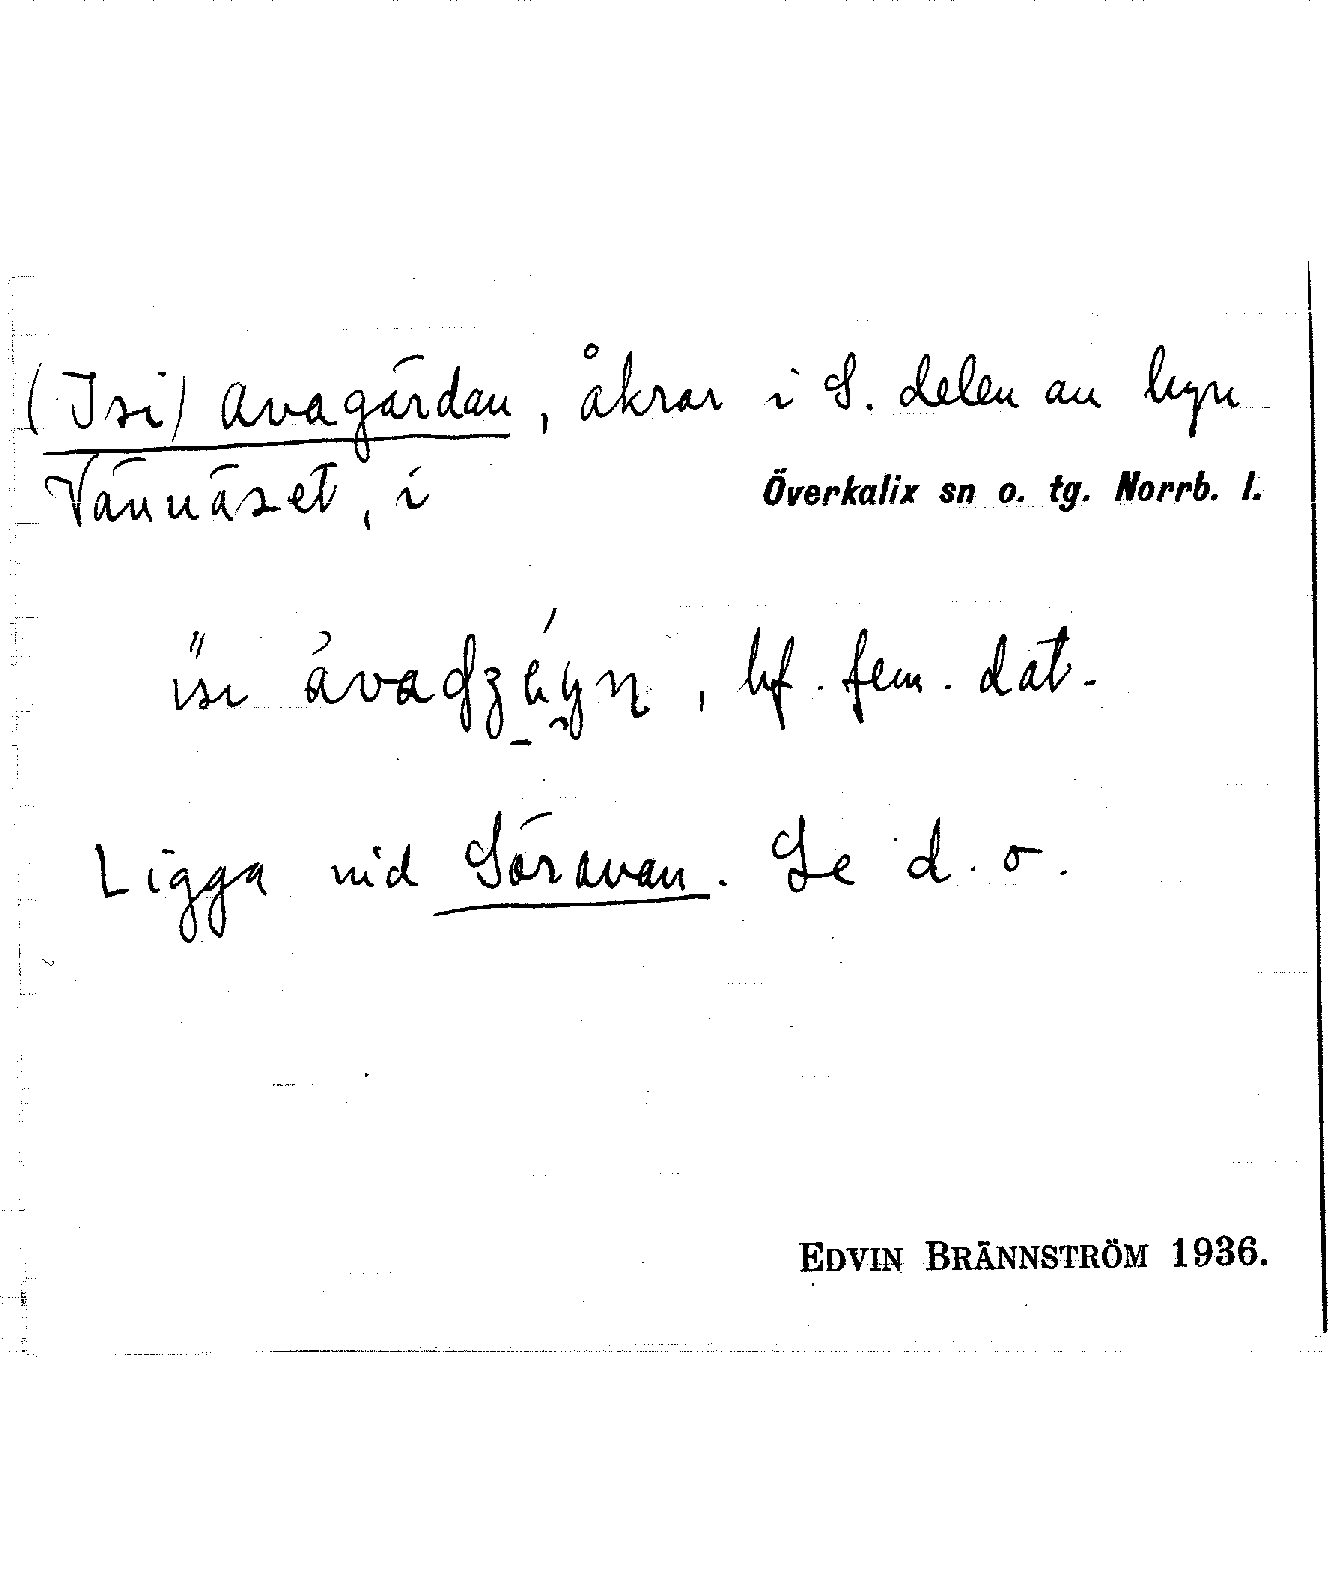 (Isi) avagärdan, åkrar i S. delen av byn
Vännäset, i Överkalix sn o. tg. Norrb. l.
bf. fem. dat.
Ligga vid Söravan. Se d. o.
EDVIN BRÄNNSTRÖM 1936.